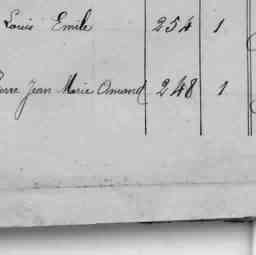 Louis Emile 254 1
Jean Marie Amand 248 1